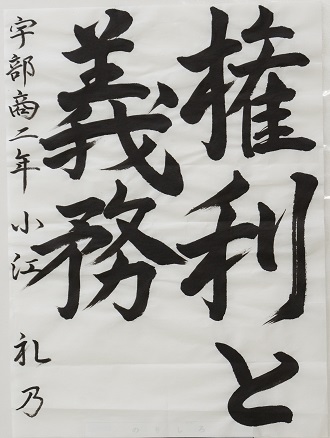 権利と
義務
宇部商二年 小江 礼乃